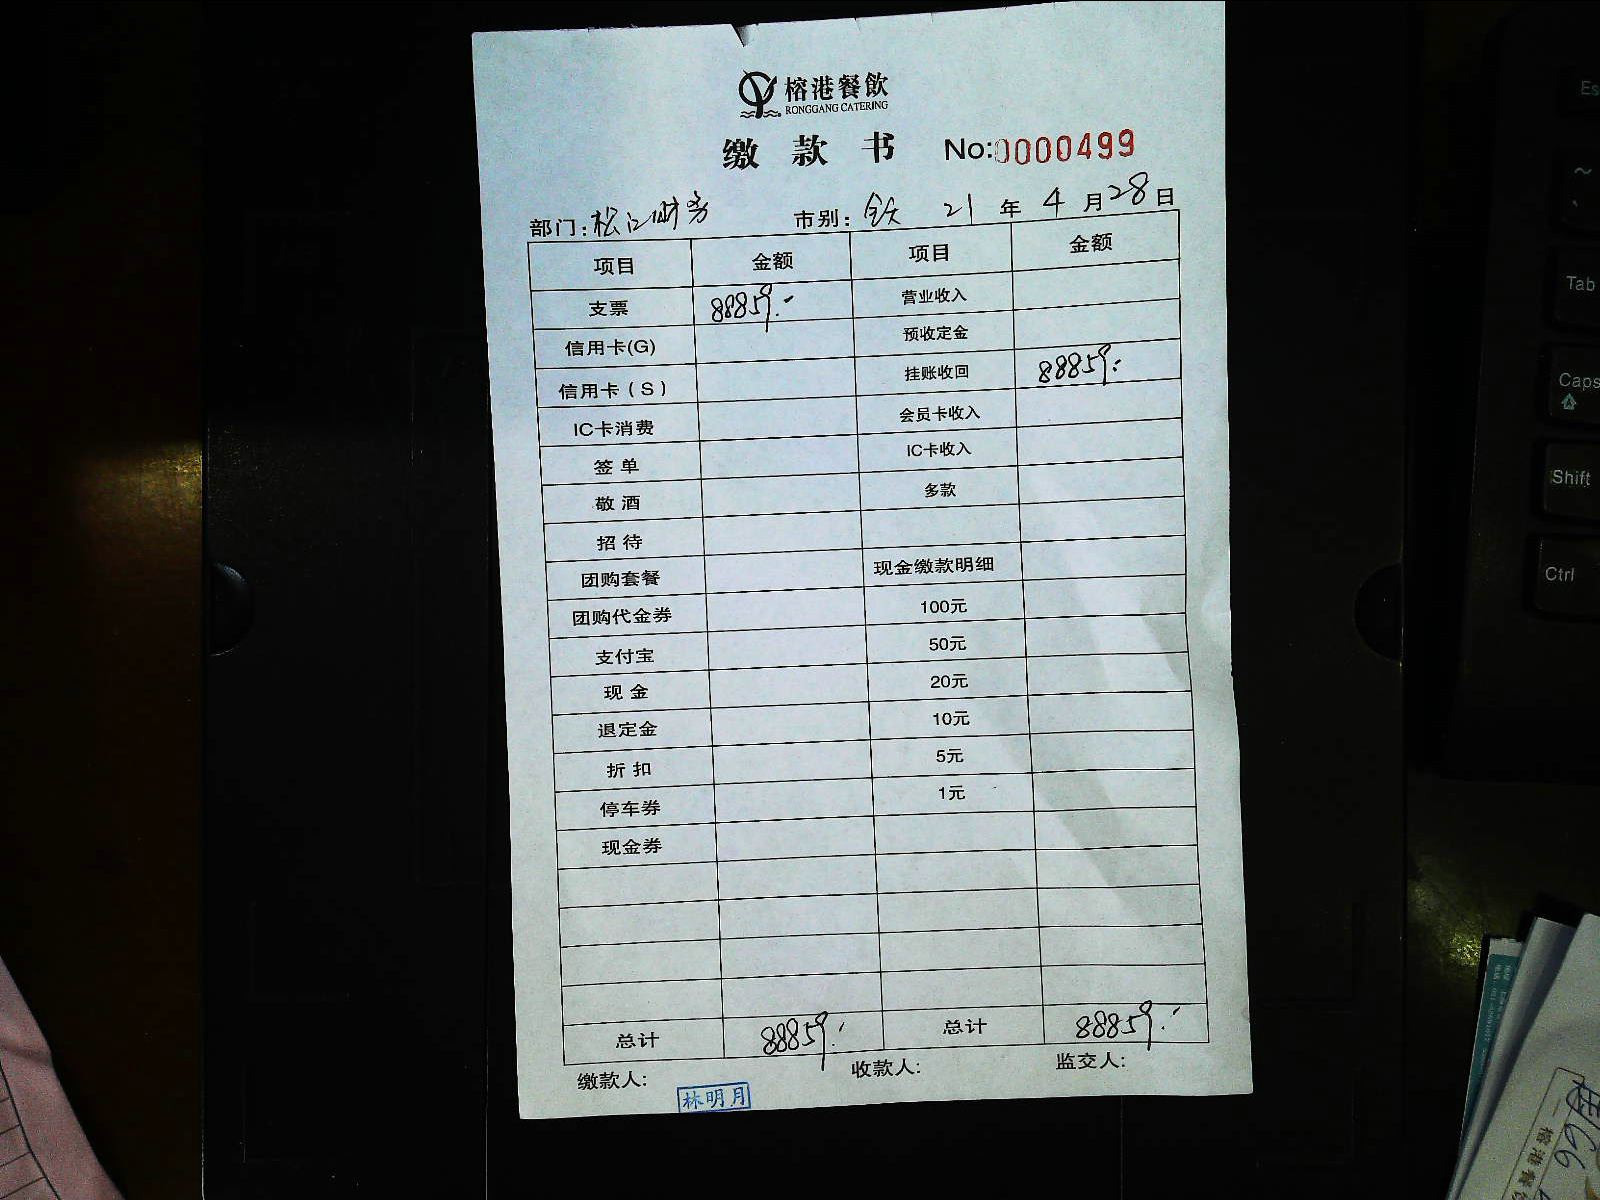 榕港餐飲
RONGGANG CATERING
缴 款 书 No:0000499
部门:松江财务 市别:全天 21 年 4 月 28 日
项目 金额 项目 金额
支票 88859.- 营业收入
信用卡(G) 预收定金
信用卡(S) 挂账收回 88859.-
IC卡消费 会员卡收入
签单 IC卡收入
敬酒 多款
招待
团购套餐 现金缴款明细
团购代金券 100元
支付宝 50元
现金 20元
退定金 10元
折扣 5元
停车券 1元
现金券
总计 88859.- 总计 88859.-
缴款人: 林明月 收款人: 监交人:
Es
~
Tab
Caps
Shift
Ctrl